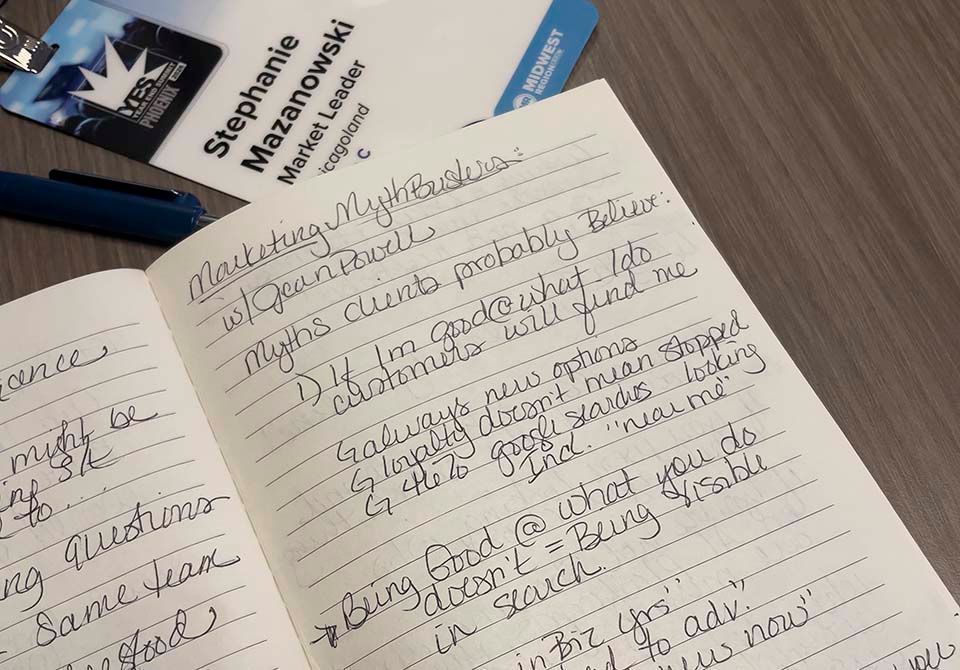 YES
YEAR END SUMMIT
PHOENIX
Stephanie
Mazanowski
Market Leader
icagoland
C
MIDWEST
REGION
might be
to...
questions
Same team
Marketing MythBusters:
w/ Jean Powell
Myths clients probably Believe:
1) If Im good@what I do
customers will find me
↳ always new options
↳ loyalty doesn't mean stopped looking
↳ 46% google searches
incl. "near me"
Being Good @ what you do
doesn't = Being visible
in search.
in Biz yrs"
to adv."
now"
you